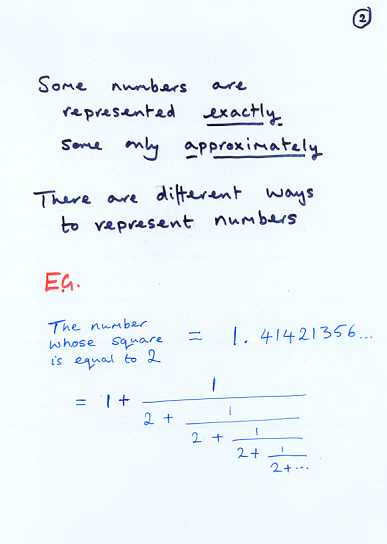 2
Some numbers are
represented exactly
some only approximately
There are different ways
to represent numbers
E.G.
The number
whose square = 1.41421356...
is equal to 2
= 1 + 1
2 + 1
2 + 1
2 + 1
2 + ...